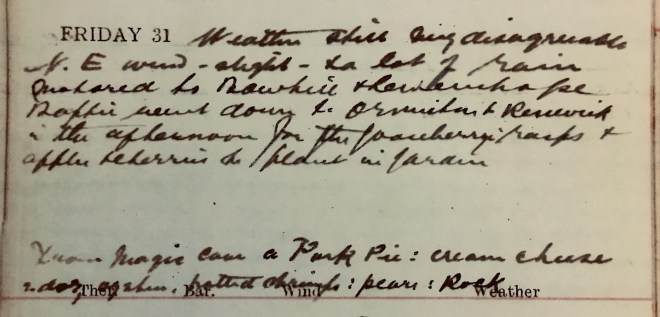 FRIDAY 31 Weather still very disagreeable
N. E wind - slight - & a lot of rain
motored to Bowhill &
went down to & Renwick
in the afternoon for the gooseberry rasps &
apple & cherries to plant in garden
From Magic came a Pork Pie: cream cheese
2 doz potted shrimps: pears: Rock
Ther. Bar. Wind Weather